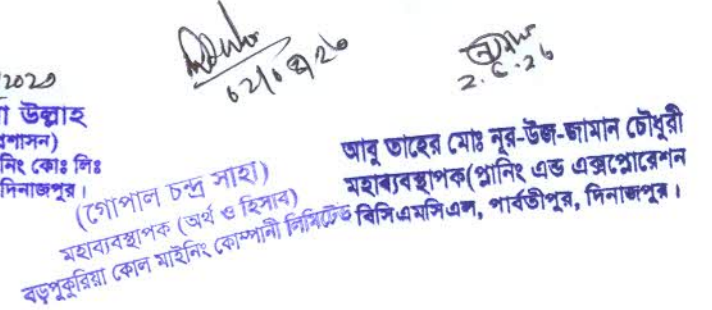 /2020
উল্লাহ
প্রশাসন)
নিং কোঃ লিঃ
দিনাজপুর।
(গোপাল চন্দ্র সাহা)
মহাব্যবস্থাপক (অর্থ ও হিসাব)
বড়পুকুরিয়া কোল মাইনিং কোম্পানী লিমিটেড
আবু তাহের মোঃ নূর-উজ-জামান চৌধুরী
মহাব্যবস্থাপক(প্লানিং এন্ড এক্সপ্লোরেশন
বিসিএমসিএল, পার্বতীপুর, দিনাজপুর।